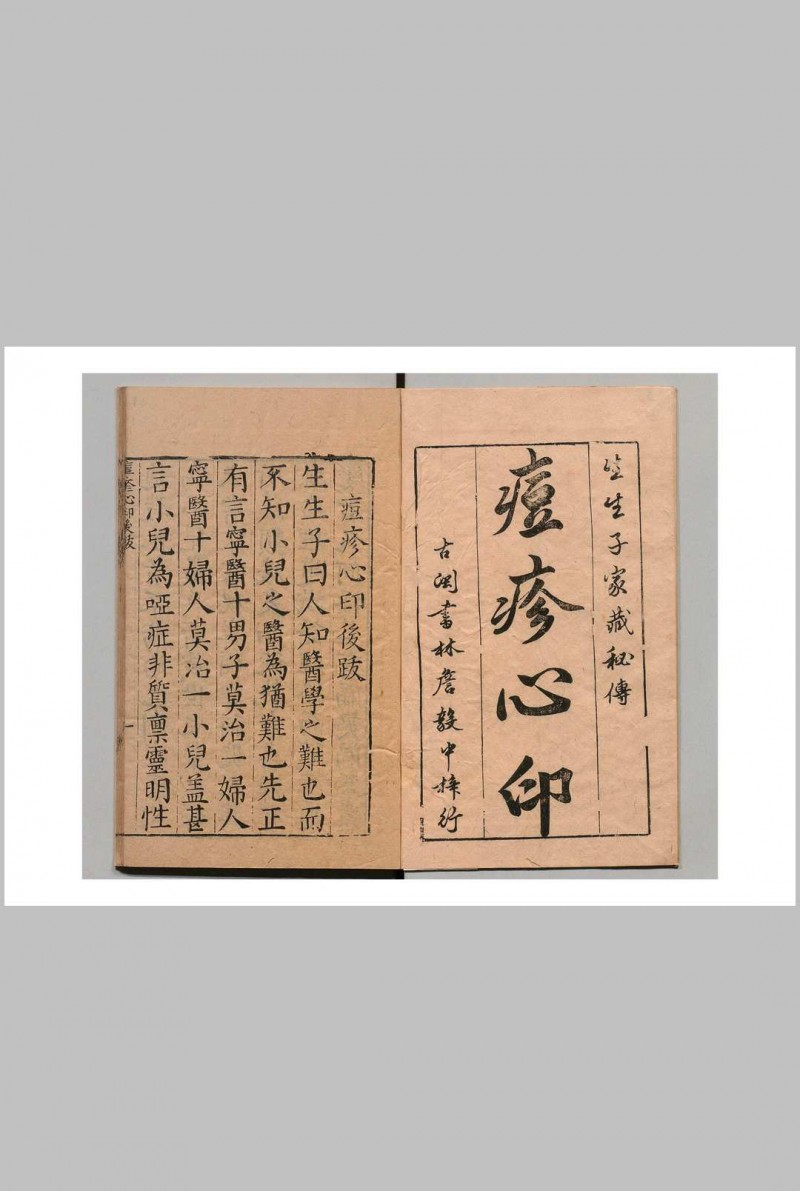 生生子家藏秘傳
痘疹心印
古閩書林詹毅中梓行
痘疹心印後跋
生生子曰人知醫學之難也而
不知小兒之醫為猶難也先正
有言寧醫十男子莫治一婦人
寧醫十婦人莫治一小兒葢甚
言小兒為啞症非質禀靈明性
痘疹心印後跋